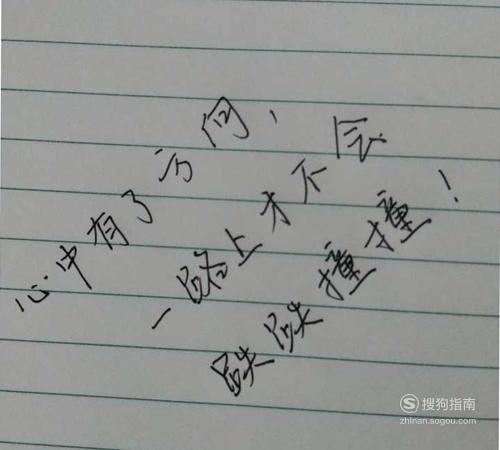 心中有了方向，
一路上才不会
跌跌撞撞！
搜狗指南
zhinan.sogou.com